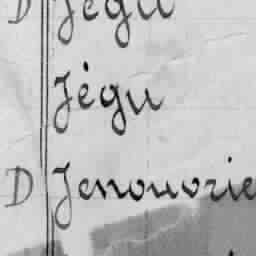 D Jégu
Jégu
D Jenouvrie